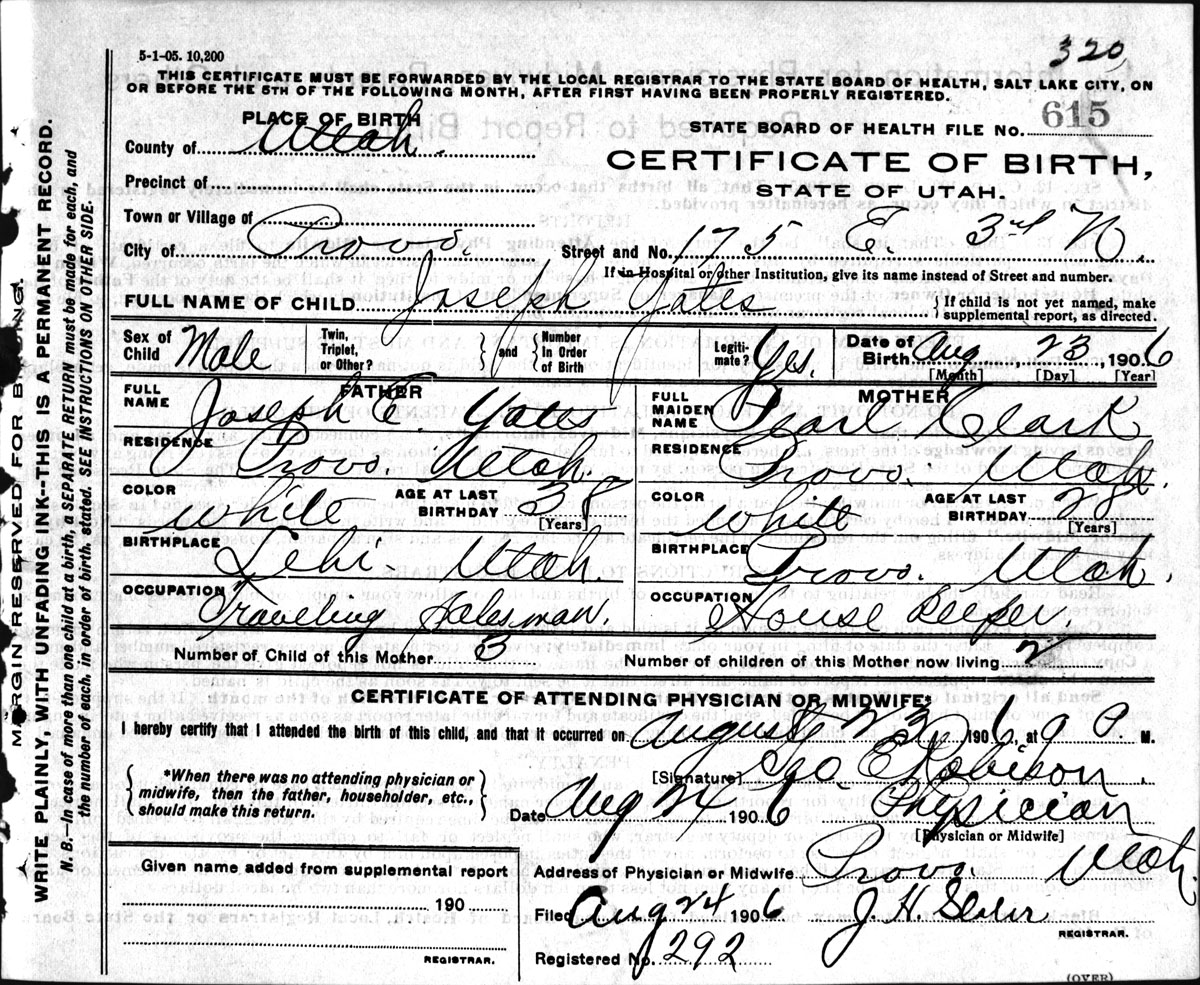 5-1-05. 10,200
320
THIS CERTIFICATE MUST BE FORWARDED BY THE LOCAL REGISTRAR TO THE STATE BOARD OF HEALTH, SALT LAKE CITY, ON
OR BEFORE THE 5TH OF THE FOLLOWING MONTH, AFTER FIRST HAVING BEEN PROPERLY REGISTERED.
PLACE OF BIRTH
STATE BOARD OF HEALTH FILE NO. 615
County of Utah.
CERTIFICATE OF BIRTH,
STATE OF UTAH.
Precinct of
Town or Village of
City of Provo. Street and No. 175 E. 3rd N.
If in Hospital or other Institution, give its name instead of Street and number.
FULL NAME OF CHILD Joseph Yates { If child is not yet named, make supplemental report, as directed.
Sex of Child Male Twin, Triplet, or Other? } and { Number in Order of Birth Legiti-mate? Yes. Date of Birth Aug 23, 1906
[Month] [Day] [Year]
FATHER MOTHER
FULL NAME Joseph E. Yates FULL MAIDEN NAME Pearl Clark
RESIDENCE Provo. Utah. RESIDENCE Provo. Utah.
COLOR White AGE AT LAST BIRTHDAY 38 [Years] COLOR White AGE AT LAST BIRTHDAY 28 [Years]
BIRTHPLACE Lehi. Utah. BIRTHPLACE Provo. Utah.
OCCUPATION Traveling Salesman. OCCUPATION House Keeper.
Number of Child of this Mother 3 Number of children of this Mother now living 2
CERTIFICATE OF ATTENDING PHYSICIAN OR MIDWIFE*
I hereby certify that I attended the birth of this child, and that it occurred on August 23 1906, at 9 P. M.
{ *When there was no attending physician or midwife, then the father, householder, etc., should make this return. }
[Signature] Geo E Robison
Date Aug 24 1906 Physician
[Physician or Midwife]
Given name added from supplemental report
190
REGISTRAR.
Address of Physician or Midwife Provo. Utah.
Filed Aug 24 1906 J. H.
REGISTRAR.
Registered No. 292
(OVER)
MARGIN RESERVED FOR BINDING.
WRITE PLAINLY, WITH UNFADING INK--THIS IS A PERMANENT RECORD.
N. B.—In case of more than one child at a birth, a SEPARATE RETURN must be made for each, and
the number of each, in order of birth, stated. SEE INSTRUCTIONS ON OTHER SIDE.